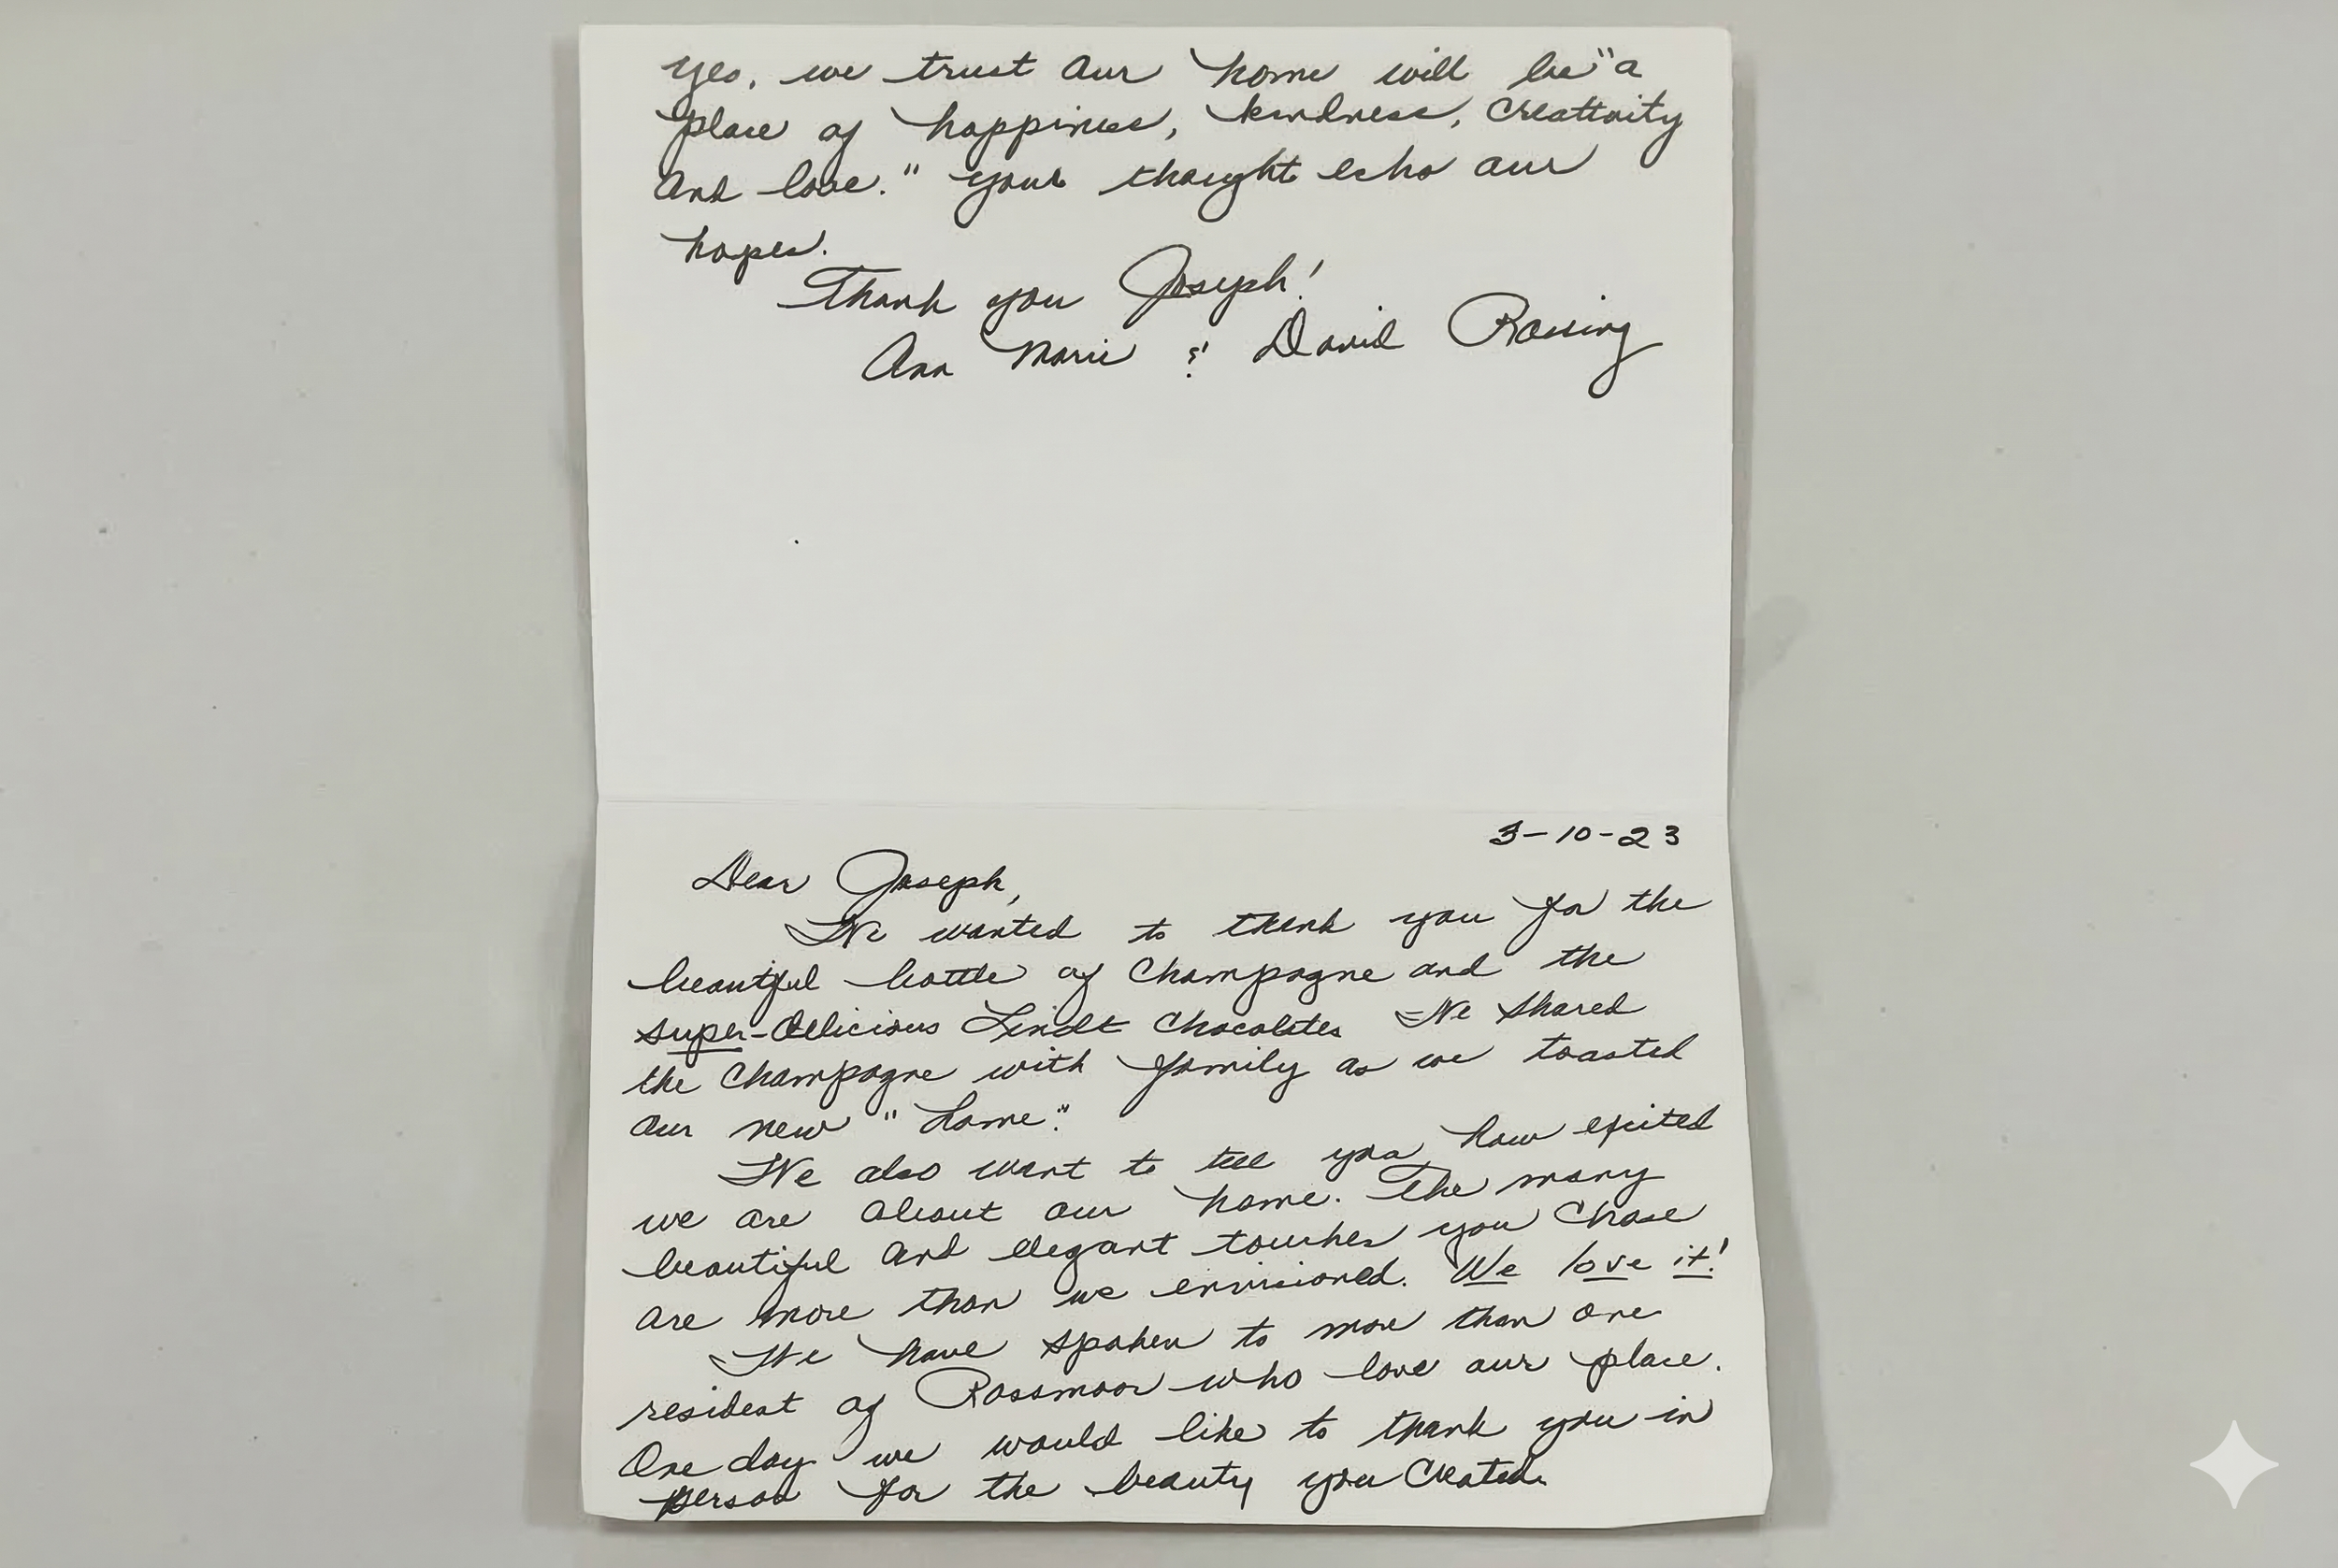 3-10-23
Dear Joseph,
We wanted to thank you for the
beautiful bottle of Champagne and the
super-delicious Lindt Chocolates We shared
the Champagne with family as we toasted
our new "home."
We also want to tell you how exited
we are about our home. The many
beautiful and elegant touches you chose
are more than we envisioned. We love it!
We have spoken to more than one
resident of Rossmoor who love our place.
One day we would like to thank you in
person for the beauty you Created.
Yes, we trust our home will be "a
place of happiness, kindness, Creativity
and love." Your thought echo our
hopes.
Thank you Joseph!
Ann Marie & David